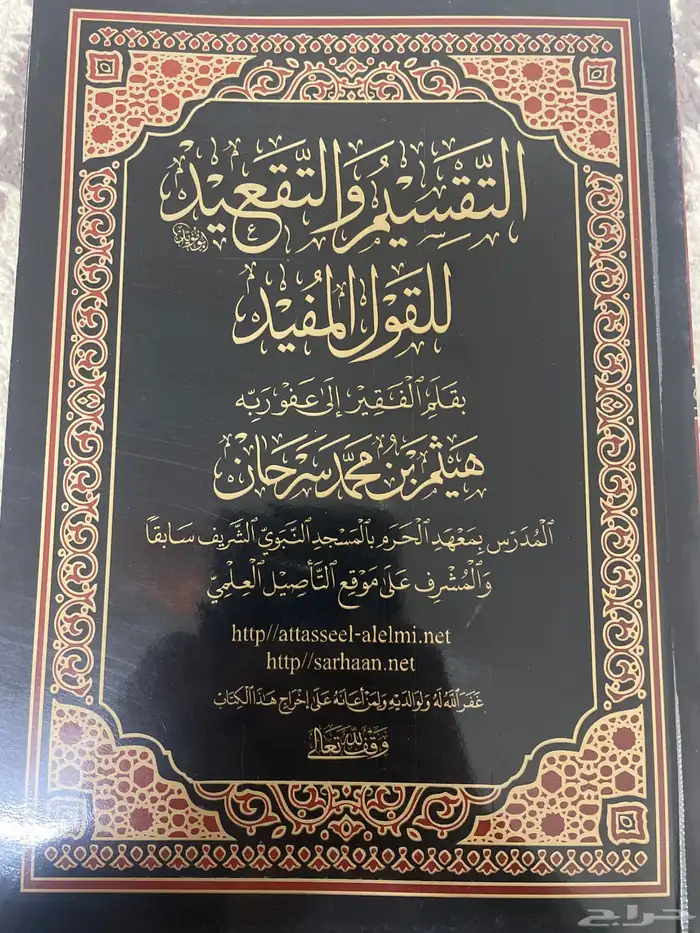 التَّقْسِيمُ وَالتَّقْعِيدُ
للقَوْلِ المُفِيدِ
بِقَلَمِ الْفَقِيرِ إِلَى عَفْوِ رَبِّهِ
هَيْثَمِ بْنِ مُحَمَّد سَرْحَان
الْمُدَرِّسِ بِمَعْهَدِ الْحَرَمِ بِالْمَسْجِدِ النَّبَوِيِّ الشَّرِيفِ سَابِقًا
وَالْمُشْرِفِ عَلَى مَوْقِعِ التَّأْصِيلِ الْعِلْمِيِّ
http//attasseel-alelmi.net
http//sarhaan.net
غَفَرَ اللهُ لَهُ وَلِوَالِدَيْهِ وَلِمَنْ أَعَانَهُ عَلَى إِخْرَاجِ هَذَا الْكِتَابِ
وَقْفٌ لِلَّهِ تَعَالَى
حراج